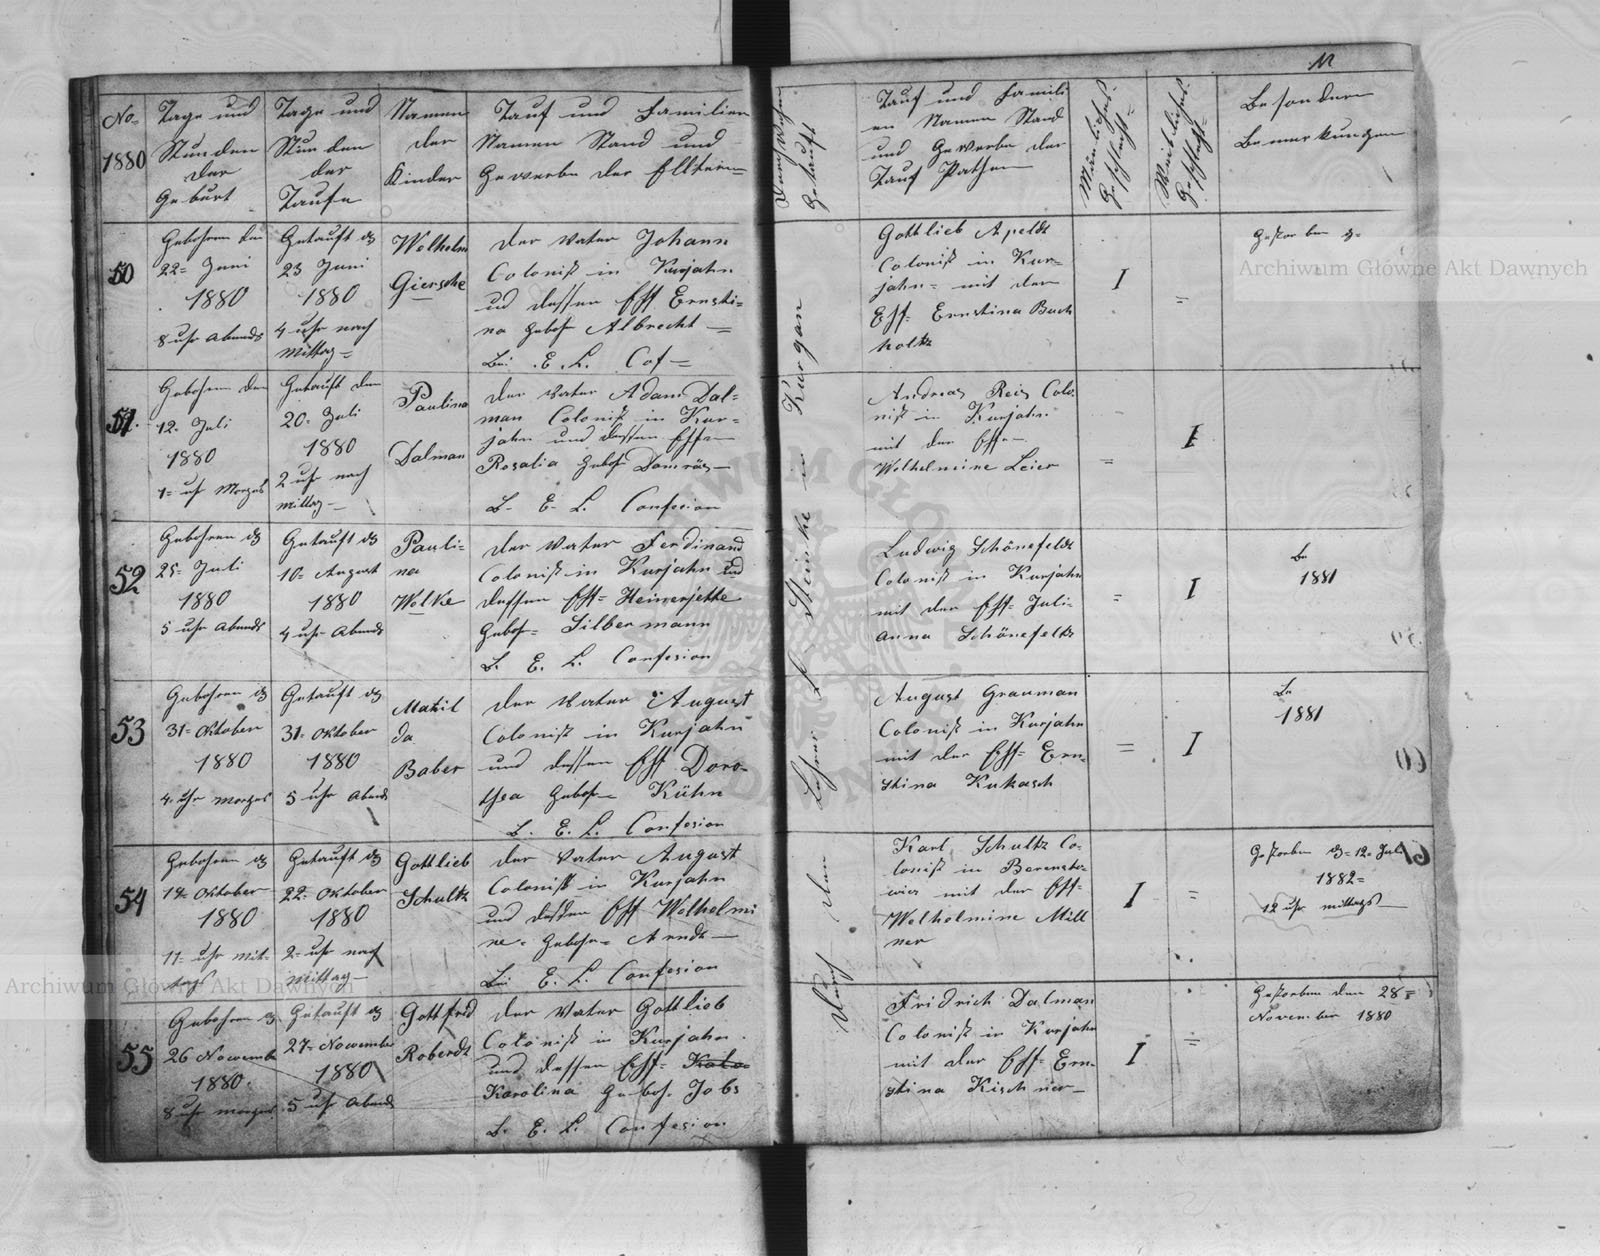 No=
1880
Tage und
Stunden
der
Geburt
Tage und
Stunden
der
Taufe
Namen
der
Kinder
Tauf und Familien
Namen Stand und
Gewerbe der Elltern=
Getauft
Tauf und Famili
en Namen Stand
und Gewerbe der
Tauf Pathen
Mänliches
Geschlecht=
Weibliches
Geschlecht=
Besondere
Bemerkungen
50
Gebohren den
22= Juni
1880
8 uhr Abends
Getauft d
23 Juni
1880
4 uhr nach
Mittag=
Welhelm
Giersche
der Vater Johann
Colonist in Kurjahn
und dessen Ehf Ernsti=
na gebohr Albrecht=
Bei E. L. Cof=
Gottlieb Apeldt
Colonist in Kur=
jahn= mit der
Ehf= Ernstina Buch
holtz
I
=
Gestorben d=
51.
Gebohren den
12= Juli
1880
1= uhr Morgens
Getauft den
20= Juli
1880
2 uhr nach
Mittag=
Paulina
Dalman
der Vater Adam Dal=
man Colonist in Kur=
jahn und dessen Ehf=
Rosalia Gebohr
B. E. L. Confesion
Andreas Reis Colo
nist in Kurjahn
mit der Ehf=
Welhelmine Leier
=
I
52
Gebohren d
25= Juli
1880
5 uhr Abends
Getauft d
10= August
1880
4 uhr Abends
Pauli=
na
Welke
der Vater Ferdinand
Colonist in Kurjahn und
dessen Ehf= Heinerjette
Gebohr= Silbermann
B. E. L. Confesion
Ludwig Schönefeldt
Colonist in Kurjahn
mit der Ehf= Juli=
anna Schönefeldt
=
I
1881
53
Gebohren d
31= Oktober
1880
4= uhr Morgens
Getauft d
31= Oktober
1880
5 uhr Abends
Matil
da
Baber
der Vater August
Colonist in Kurjahn
und dessen Ehf Doro=
thea Gebohr= Kühn
B. E. L. Confesion
August Grauman
Colonist in Kurjahn
mit der Ehf= Ern=
stina Kukasch
=
I
1881
54
Gebohren d
Oktober
1880
11= uhr mit=
tags
Getauft d
22= Oktober
1880
2= uhr nach
Mittag=
Gottlieb
Schultz
der Vater August
Colonist in Kurjahn
und dessen Ehf Welhelmi
ne= Gebohr= Arndt=
Bei E. L. Confesion
Karl Schultz Co=
lonist in
mit der Ehf=
Welhelmine Mill
ner
I
=
Gestorben d= 12= Juli
1882=
12 uhr mittags
55
Gebohren d
26 Nowember
1880.
8 uhr morgens
Getauft d
27= Nowember
1880
5 uhr Abends
Gottfried
Roberdt
der Vater Gottlieb
Colonist in Kurjahn
und dessen Ehf=
Karolina Gebohr. Jobs
B. E. L. Confesion
Fridrich Dalman
Colonist in Kurjahn
mit der Ehf= Ern=
stina Kischner=
I
=
Gestorben den 28=
November 1880
Durch den Lehrer Steinke in Kurgan
Archiwum Główne Akt Dawnych
Archiwum Główne Akt Dawnych